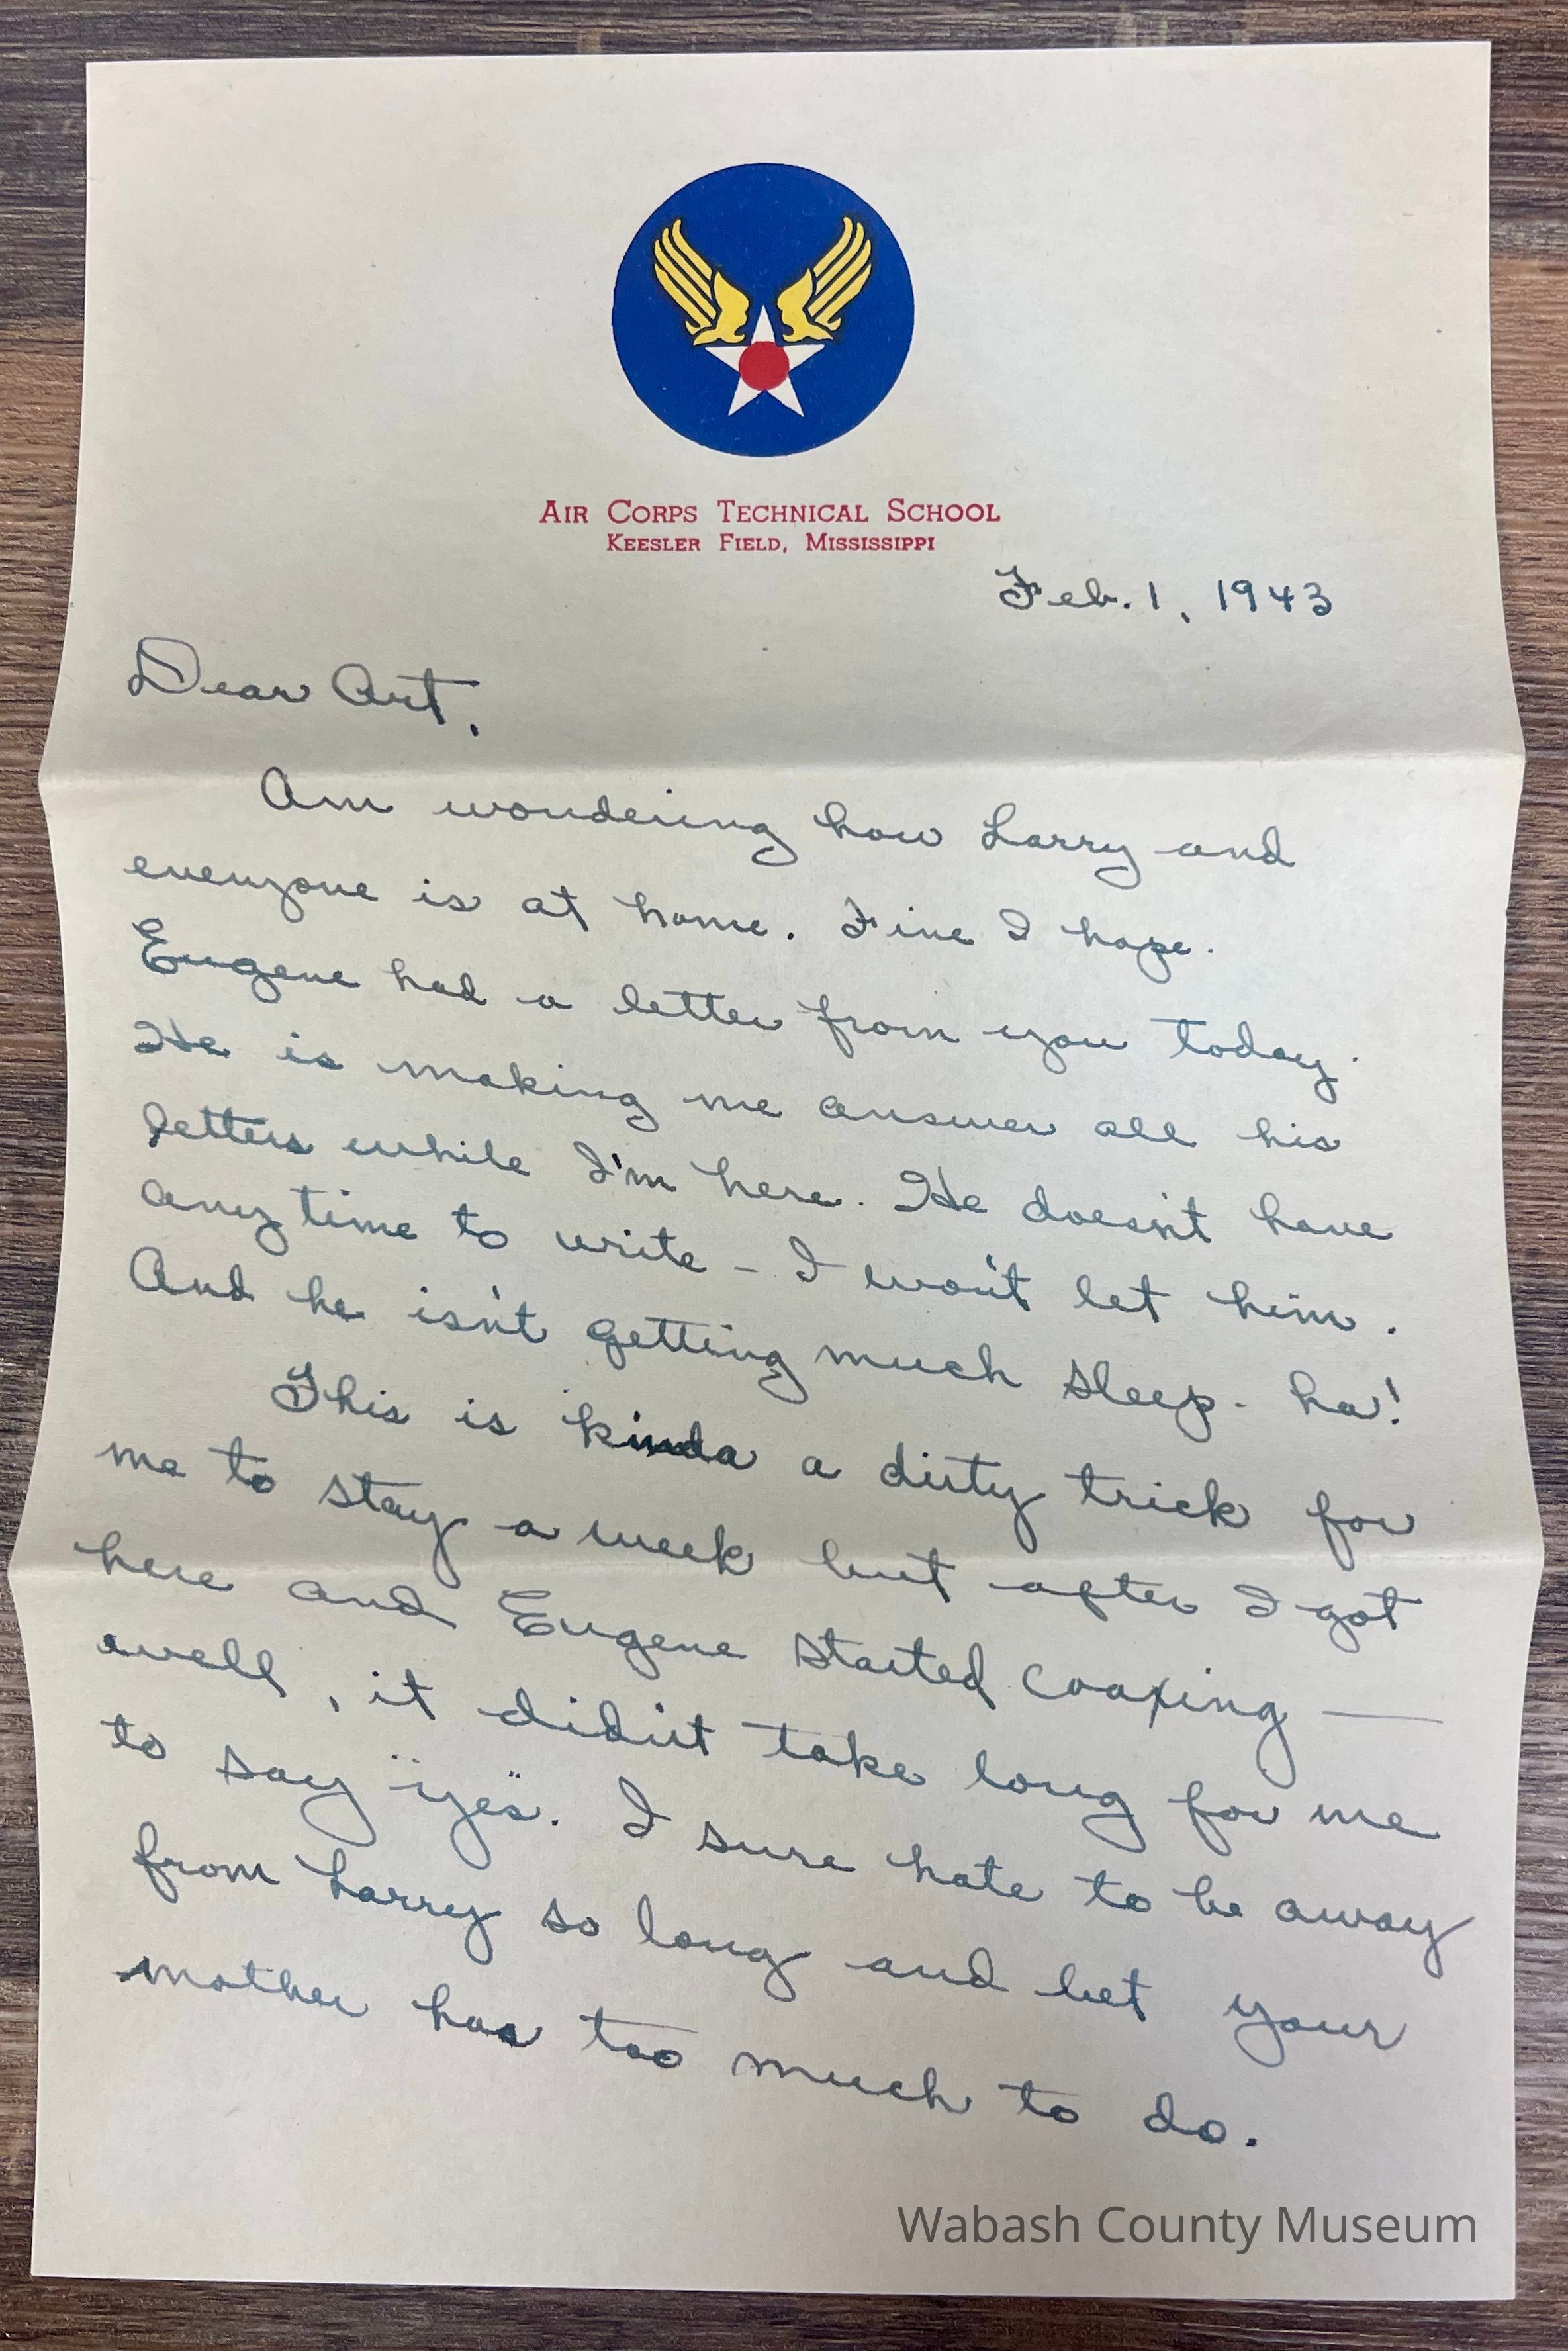 AIR CORPS TECHNICAL SCHOOL
KEESLER FIELD, MISSISSIPPI
Feb. 1, 1943
Dear Art,
Am wondering how Larry and
everyone is at home. Fine I hope.
Eugene had a letter from you today.
He is making me answer all his
letters while I'm here. He doesn't have
any time to write – I won't let him.
And he isn't getting much sleep. ha!
This is kinda a dirty trick for
me to stay a week but after I got
here and Eugene started coaxing —
well, it didn't take long for me
to say "yes". I sure hate to be away
from Larry so long and bet your
mother has too much to do.
Wabash County Museum